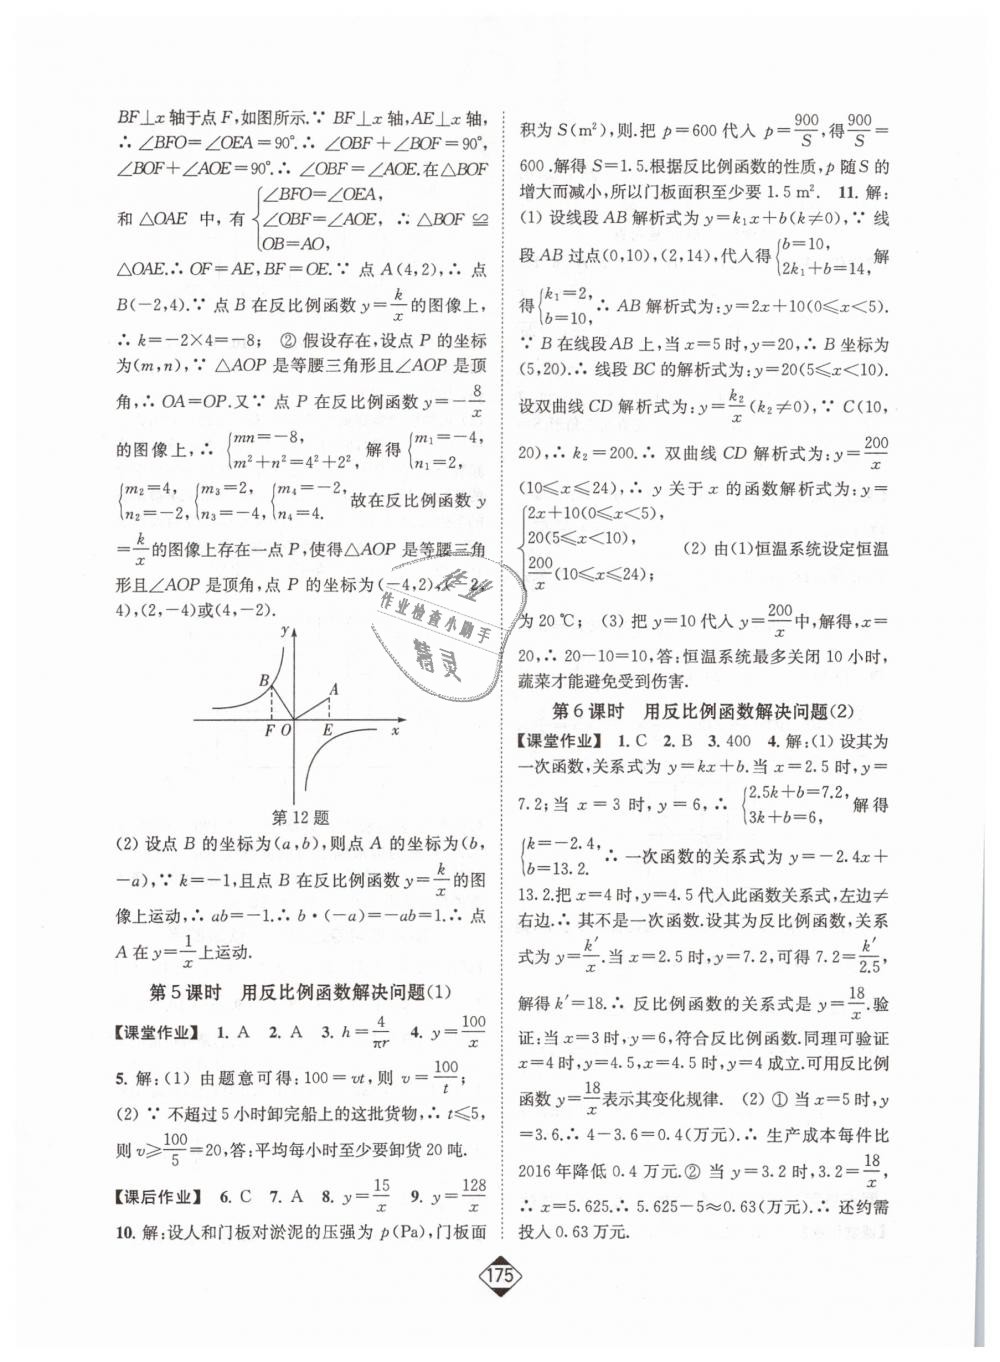 BF⊥x 轴于点 F,如图所示.∵ BF⊥x 轴,AE⊥x 轴,
∴ ∠BFO=∠OEA=90°.∴ ∠OBF+∠BOF=90°,
∠BOF+∠AOE=90°.∴ ∠OBF=∠AOE.在△BOF
和 △OAE 中,有 {∠BFO=∠OEA, ∠OBF=∠AOE, OB=AO, ∴ △BOF ≌
△OAE.∴ OF=AE,BF=OE.∵ 点 A(4,2),∴ 点
B(-2,4).∵ 点 B 在反比例函数 y=k/x 的图像上,
∴ k=-2×4=-8; ② 假设存在,设点 P 的坐标
为(m,n),∵ △AOP 是等腰三角形且∠AOP 是顶
角,∴ OA=OP.又∵ 点 P 在反比例函数 y=-8/x
的图像上,∴ {mn=-8, m²+n²=4²+2², 解得 {m₁=-4, n₁=2,
{m₂=4, n₂=-2, {m₃=2, n₃=-4, {m₄=-2, n₄=4. 故在反比例函数 y
=k/x 的图像上存在一点 P,使得△AOP 是等腰三角
形且∠AOP 是顶角,点 P 的坐标为(-4,2),(-2,
4),(2,-4)或(4,-2).
y
B
A
F O E x
第 12 题
(2) 设点 B 的坐标为(a,b),则点 A 的坐标为(b,
-a),∵ k=-1,且点 B 在反比例函数 y=k/x 的图
像上运动,∴ ab=-1.∴ b·(-a)=-ab=1.∴ 点
A 在 y=1/x 上运动.
第 5 课时 用反比例函数解决问题(1)
【课堂作业】 1. A 2. A 3. h=4/πr 4. y=100/x
5. 解:(1) 由题意可得:100=vt,则 v=100/t;
(2) ∵ 不超过 5 小时卸完船上的这批货物,∴ t≤5,
则 v≥100/5=20,答:平均每小时至少要卸货 20 吨.
【课后作业】 6. C 7. A 8. y=15/x 9. y=128/x
10. 解:设人和门板对淤泥的压强为 p(Pa),门板面
积为 S(m²),则.把 p=600 代入 p=900/S,得900/S=
600.解得 S=1.5.根据反比例函数的性质,p 随S 的
增大而减小,所以门板面积至少要 1.5 m². 11. 解:
(1) 设线段 AB 解析式为 y=k₁x+b(k≠0),∵ 线
段 AB 过点(0,10),(2,14),代入得{b=10, 2k₁+b=14, 解
得{k₁=2, b=10, ∴ AB 解析式为:y=2x+10(0≤x<5).
∵ B 在线段AB 上,当 x=5 时,y=20,∴ B 坐标为
(5,20).∴ 线段 BC 的解析式为:y=20(5≤x<10).
设双曲线 CD 解析式为:y=k₂/x(k₂≠0),∵ C(10,
20),∴ k₂=200.∴ 双曲线 CD 解析式为:y=200/x
(10≤x≤24),∴ y 关于 x 的函数解析式为:y=
{2x+10(0≤x<5),
20(5≤x<10),
200/x(10≤x≤24); (2) 由(1)恒温系统设定恒温
为 20 ℃; (3) 把 y=10 代入 y=200/x中,解得,x=
20,∴ 20-10=10,答:恒温系统最多关闭 10 小时,
蔬菜才能避免受到伤害.
第 6 课时 用反比例函数解决问题(2)
【课堂作业】 1. C 2. B 3. 400 4. 解:(1) 设其为
一次函数,关系式为 y=kx+b.当 x=2.5 时,y=
7.2;当 x=3 时,y=6,∴ {2.5k+b=7.2, 3k+b=6, 解得
{k=-2.4, b=13.2. ∴ 一次函数的关系式为 y=-2.4x+
13.2.把 x=4 时,y=4.5 代入此函数关系式,左边≠
右边.∴ 其不是一次函数.设其为反比例函数,关系
式为 y=k′/x.当 x=2.5 时,y=7.2,可得 7.2=k′/2.5,
解得 k′=18.∴ 反比例函数的关系式是 y=18/x.验
证:当 x=3 时,y=6,符合反比例函数.同理可验证
x=4 时,y=4.5,x=4.5 时,y=4 成立.可用反比例
函数 y=18/x表示其变化规律. (2) ① 当 x=5 时,y
=3.6.∴ 4-3.6=0.4(万元).∴ 生产成本每件比
2016 年降低 0.4 万元.② 当 y=3.2 时,3.2=18/x,
∴ x=5.625.∴ 5.625-5≈0.63(万元).∴ 还约需
投入 0.63 万元.
作业
作业检查小助手
精灵
175